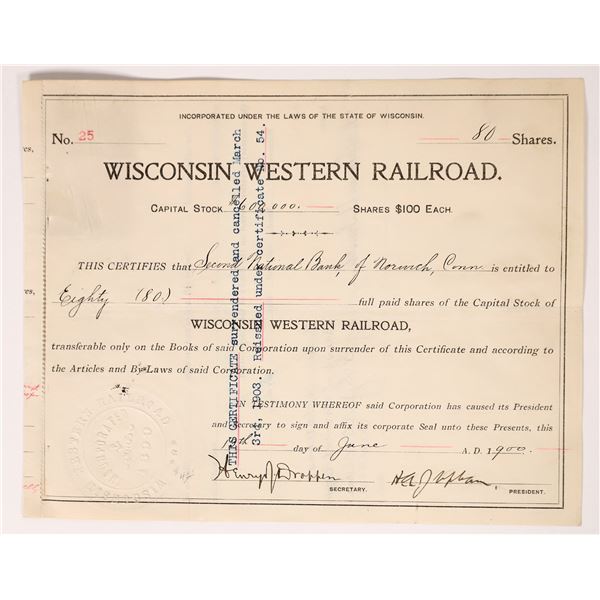 INCORPORATED UNDER THE LAWS OF THE STATE OF WISCONSIN.
No. 25
80 Shares.
WISCONSIN WESTERN RAILROAD.
CAPITAL STOCK $600,000. SHARES $100 EACH.
THIS CERTIFIES that Second National Bank of Norwich, Conn. is entitled to
Eighty (80) full paid shares of the Capital Stock of
WISCONSIN WESTERN RAILROAD,
transferable only on the Books of said Corporation upon surrender of this Certificate and according to
the Articles and By-Laws of said Corporation.
IN TESTIMONY WHEREOF said Corporation has caused its President
and Secretary to sign and affix its corporate Seal unto these Presents, this
day of June A.D. 1900.
SECRETARY.
PRESIDENT.
THIS CERTIFICATE surrendered and cancelled March
3rd, 1903. Reissued under certificate No. 54.